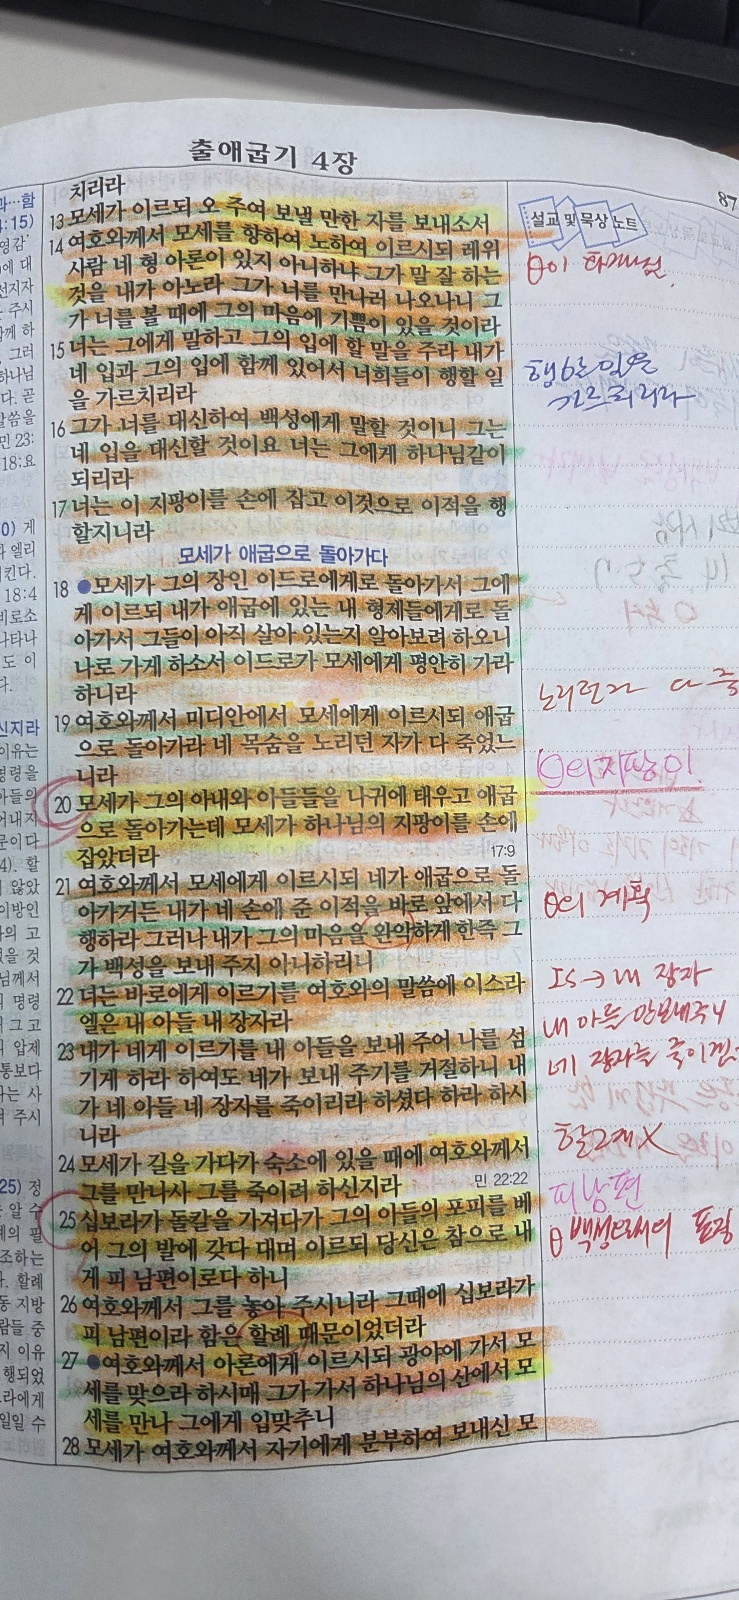 출애굽기 4장
87
치리라
13 모세가 이르되 오 주여 보낼 만한 자를 보내소서
14 여호와께서 모세를 향하여 노하여 이르시되 레위
사람 네 형 아론이 있지 아니하냐 그가 말 잘 하는
것을 내가 아노라 그가 너를 만나러 나오나니 그
가 너를 볼 때에 그의 마음에 기쁨이 있을 것이라
15 너는 그에게 말하고 그의 입에 할 말을 주라 내가
네 입과 그의 입에 함께 있어서 너희들이 행할 일
을 가르치리라
16 그가 너를 대신하여 백성에게 말할 것이니 그는
네 입을 대신할 것이요 너는 그에게 하나님같이
되리라
17 너는 이 지팡이를 손에 잡고 이것으로 이적을 행
할지니라
모세가 애굽으로 돌아가다
18 ●모세가 그의 장인 이드로에게로 돌아가서 그에
게 이르되 내가 애굽에 있는 내 형제들에게로 돌
아가서 그들이 아직 살아 있는지 알아보려 하오니
나로 가게 하소서 이드로가 모세에게 평안히 가라
하니라
19 여호와께서 미디안에서 모세에게 이르시되 애굽
으로 돌아가라 네 목숨을 노리던 자가 다 죽었느
니라
20 모세가 그의 아내와 아들들을 나귀에 태우고 애굽
으로 돌아가는데 모세가 하나님의 지팡이를 손에
잡았더라 17:9
21 여호와께서 모세에게 이르시되 네가 애굽으로 돌
아가거든 내가 네 손에 준 이적을 바로 앞에서 다
행하라 그러나 내가 그의 마음을 완악하게 한즉 그
가 백성을 보내 주지 아니하리니
22 너는 바로에게 이르기를 여호와의 말씀에 이스라
엘은 내 아들 내 장자라
23 내가 네게 이르기를 내 아들을 보내 주어 나를 섬
기게 하라 하여도 네가 보내 주기를 거절하니 내
가 네 아들 네 장자를 죽이리라 하셨다 하라 하시
니라
24 모세가 길을 가다가 숙소에 있을 때에 여호와께서
그를 만나사 그를 죽이려 하신지라 민 22:22
25 십보라가 돌칼을 가져다가 그의 아들의 포피를 베
어 그의 발에 갖다 대며 이르되 당신은 참으로 내
게 피 남편이로다 하니
26 여호와께서 그를 놓아 주시니라 그때에 십보라가
피 남편이라 함은 할례 때문이었더라
27 ●여호와께서 아론에게 이르시되 광야에 가서 모
세를 맞으라 하시매 그가 가서 하나님의 산에서 모
세를 만나 그에게 입맞추니
28 모세가 여호와께서 자기에게 분부하여 보내신 모
설교 및 묵상 노트
행할 일을
가르치리라
노리던자 다 죽
θ의 지팡이!
θ의 계획
IS → 내 장자
내 아들 안보내주니
네 장자를 죽이겠
할례 X
피남편